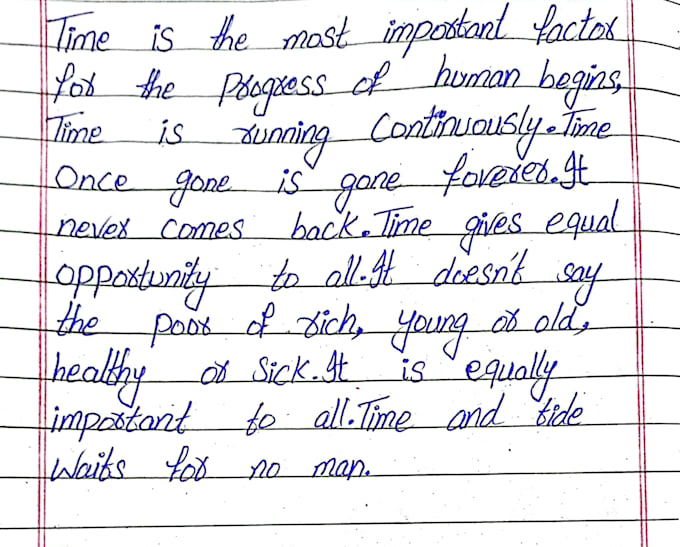 Time is the most important factor
for the Progress of human begins,
Time is running Continuously. Time
Once gone is gone forever. It
never comes back. Time gives equal
opportunity to all. It doesn't say
the poor of rich, young or old,
healthy or Sick. It is equally
important to all. Time and tide
Waits for no man.